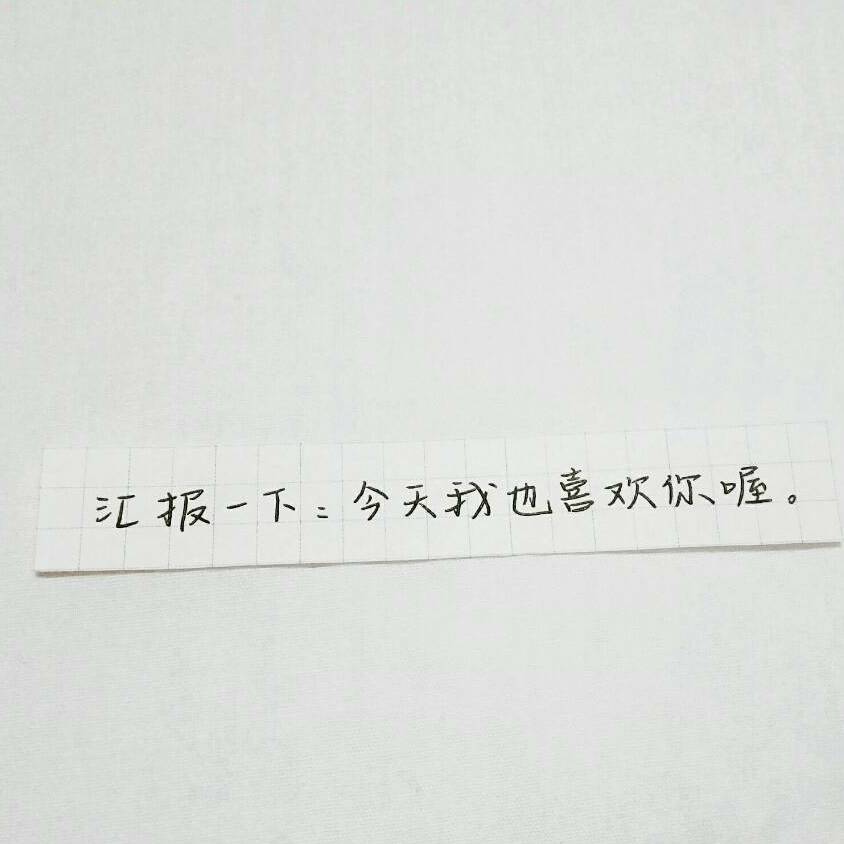 汇报一下：今天我也喜欢你喔。